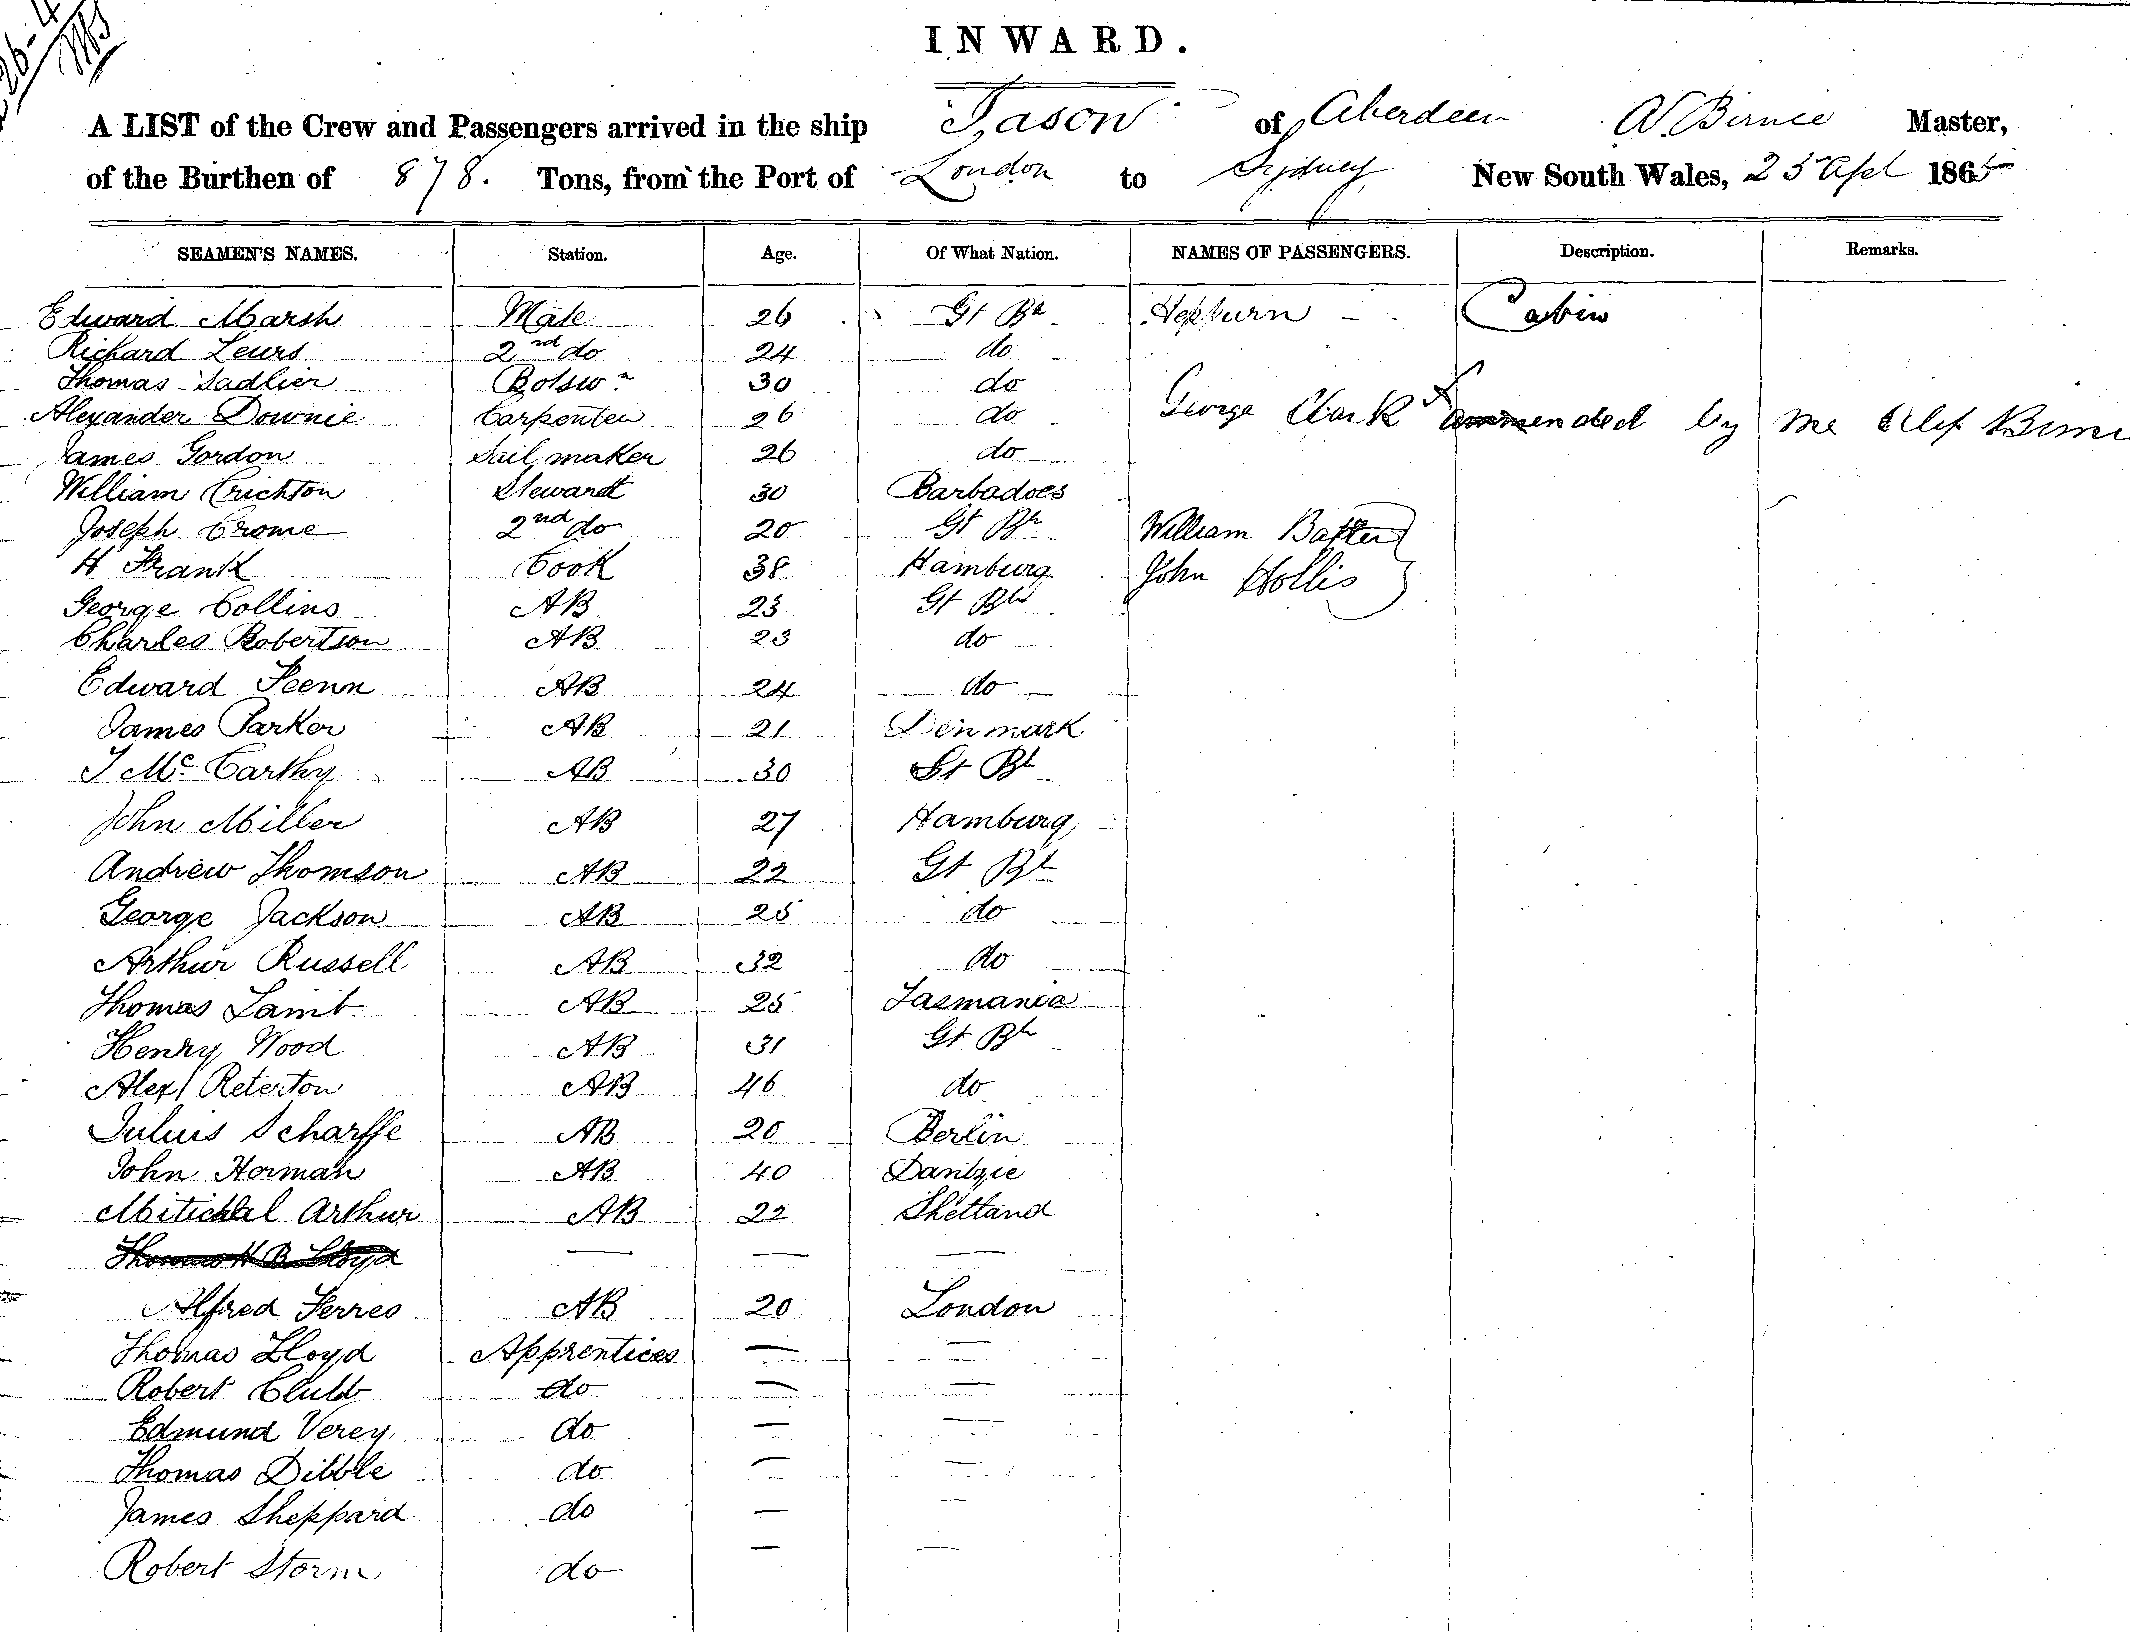 INWARD.
A LIST of the Crew and Passengers arrived in the ship Jason of Aberdeen A Birnie Master,
of the Burthen of 878. Tons, from the Port of London to Sydney New South Wales, 25 Apl 1865
SEAMEN'S NAMES. Station. Age. Of What Nation. NAMES OF PASSENGERS. Description. Remarks.
Edward Marsh Mate 26 Gt Bn Hepburn - Cabin
Richard Lewis 2nd do 24 do
Thomas Sadlier Botsw n 30 do
Alexander Downie Carpenter 26 do George Clark ammended by me Alex Birnie
James Gordon Sail maker 26 do
William Crichton Steward 30 Barbadoes
Joseph Crome 2nd do 20 Gt Bn William Baxter
H Frank Cook 38 Hamburg John Hollis
George Collins AB 23 Gt Bn
Charles Robertson AB 23 do
Edward Penn AB 24 do
James Parker AB 21 Denmark
J McCarthy AB 30 Gt Bt
John Miller AB 27 Hamburg
Andrew Thomson AB 22 Gt Bt
George Jackson AB 25 do
Arthur Russell AB 32 do
Thomas Lamb AB 25 Tasmania
Henry Wood AB 31 Gt Bn
Alex Reterton AB 46 do
Julius Scharffe AB 20 Berlin
John Horman AB 40 Dantzic
Mitichal Arthur AB 22 Shetland
Thomas H B Lloyd — — —
Alfred Ferres AB 20 London
Thomas Lloyd Apprentices — —
Robert Clubb do — —
Edmund Verey do — —
Thomas Dibble do — —
James Sheppard do — —
Robert Storm do — —